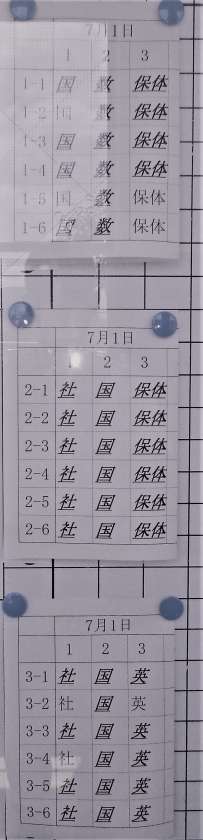 7月1日
1 2 3
1-1 国 数 保体
1-2 国 数 保体
1-3 国 数 保体
1-4 国 数 保体
1-5 国 数 保体
1-6 国 数 保体
7月1日
1 2 3
2-1 社 国 保体
2-2 社 国 保体
2-3 社 国 保体
2-4 社 国 保体
2-5 社 国 保体
2-6 社 国 保体
7月1日
1 2 3
3-1 社 国 英
3-2 社 国 英
3-3 社 国 英
3-4 社 国 英
3-5 社 国 英
3-6 社 国 英